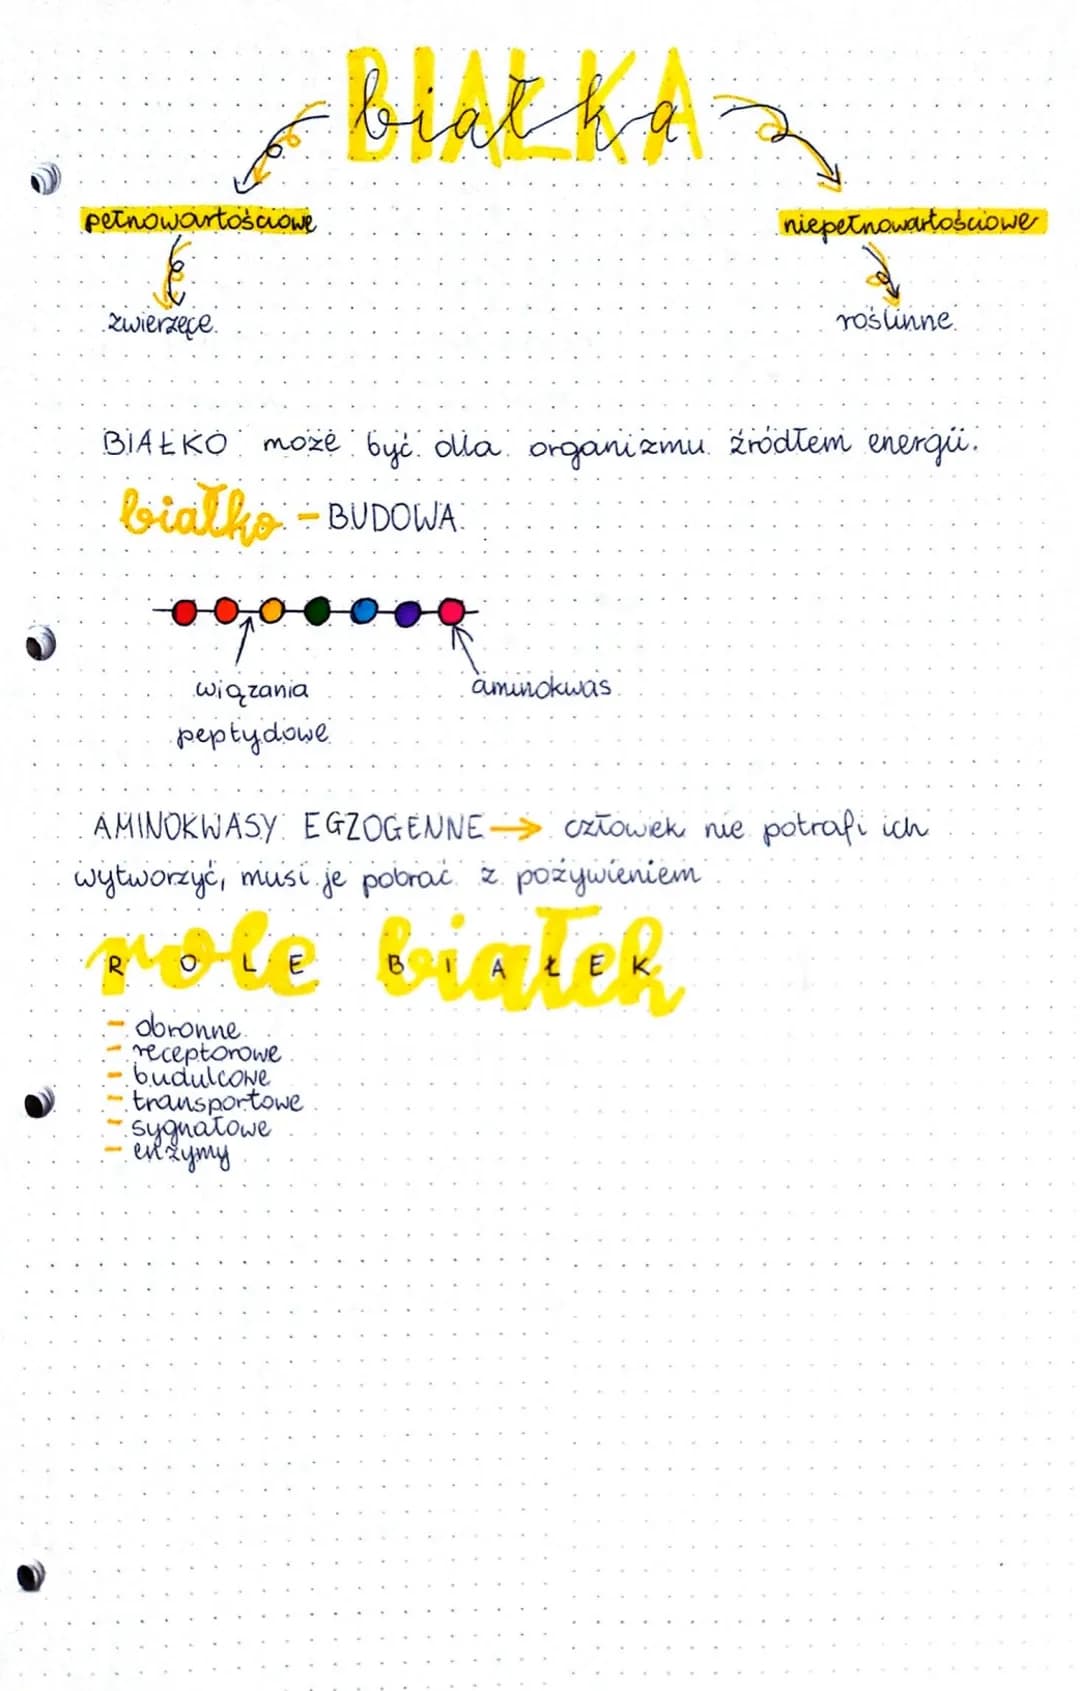 BIAŁKA
białka
pełnowartościowe
niepełnowartościowe
zwierzęce
roślinne
BIAŁKO może być dla organizmu źródłem energii.
białko - BUDOWA
wiązania
peptydowe
aminokwas
AMINOKWASY EGZOGENNE → człowiek nie potrafi ich
wytworzyć, musi je pobrać z pożywieniem
role białek
ROLE BIAŁEK
- obronne
- receptorowe
- budulcowe
- transportowe
- sygnałowe
- enzymy